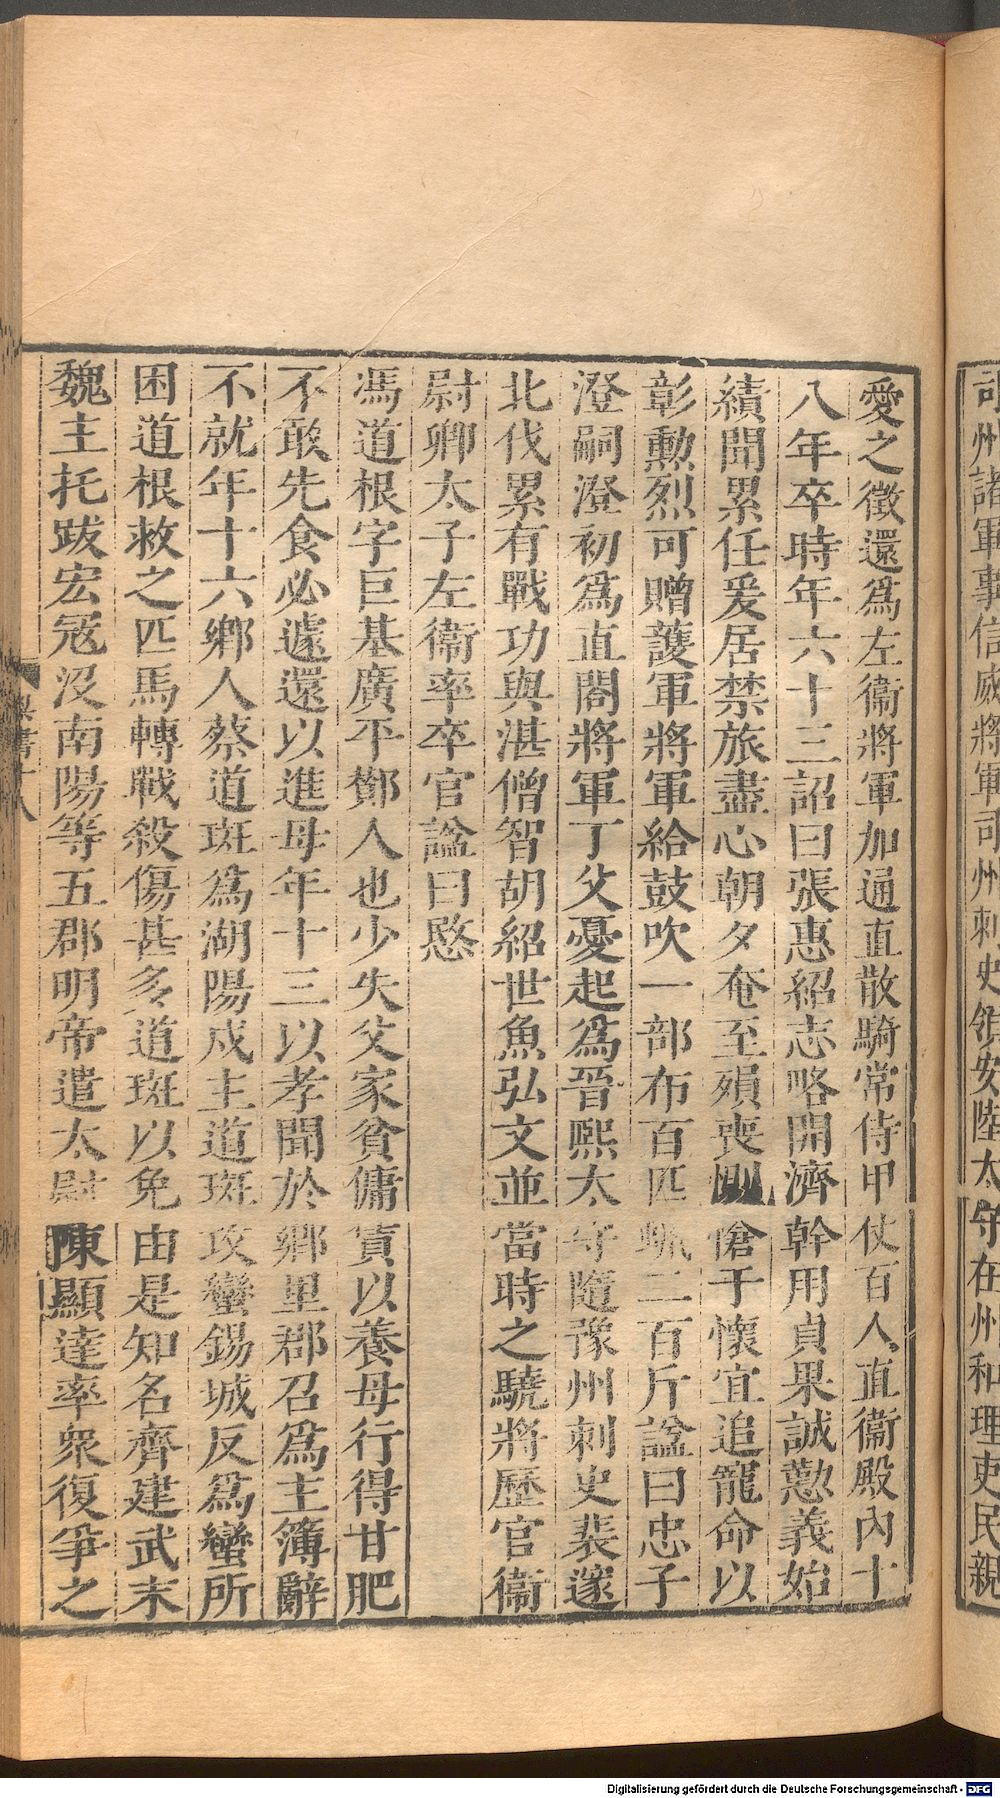 司州諸軍事信威將軍司州刺史領安陸太守在州和理吏民親
愛之徵還爲左衞將軍加通直散騎常侍甲仗百人直衞殿內十
八年卒時年六十三詔曰張惠紹志略開濟幹用貞果誠懃義始
績聞累任爰居禁旅盡心朝夕奄至殞喪惻愴于懷宜追寵命以
彰勲烈可贈護軍將軍給鼓吹一部布百匹蠟二百斤諡曰忠子
澄嗣澄初爲直閤將軍丁父憂起爲晉熙太守隨豫州刺史裴邃
北伐累有戰功與湛僧智胡紹世魚弘文並當時之驍將歷官衞
尉卿太子左衞率卒官諡曰愍
馮道根字巨基廣平酇人也少失父家貧傭賃以養母行得甘肥
不敢先食必遽還以進母年十三以孝聞於鄉里郡召爲主簿辭
不就年十六鄉人蔡道斑爲湖陽戍主道斑攻蠻錫城反爲蠻所
困道根救之匹馬轉戰殺傷甚多道斑以免由是知名齊建武末
魏主托跋宏寇沒南陽等五郡明帝遣太尉陳顯達率衆復爭之
梁書十八
Digitalisierung gefördert durch die Deutsche Forschungsgemeinschaft - DFG